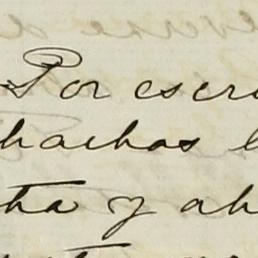 Por escri
hachas l
ta y ah